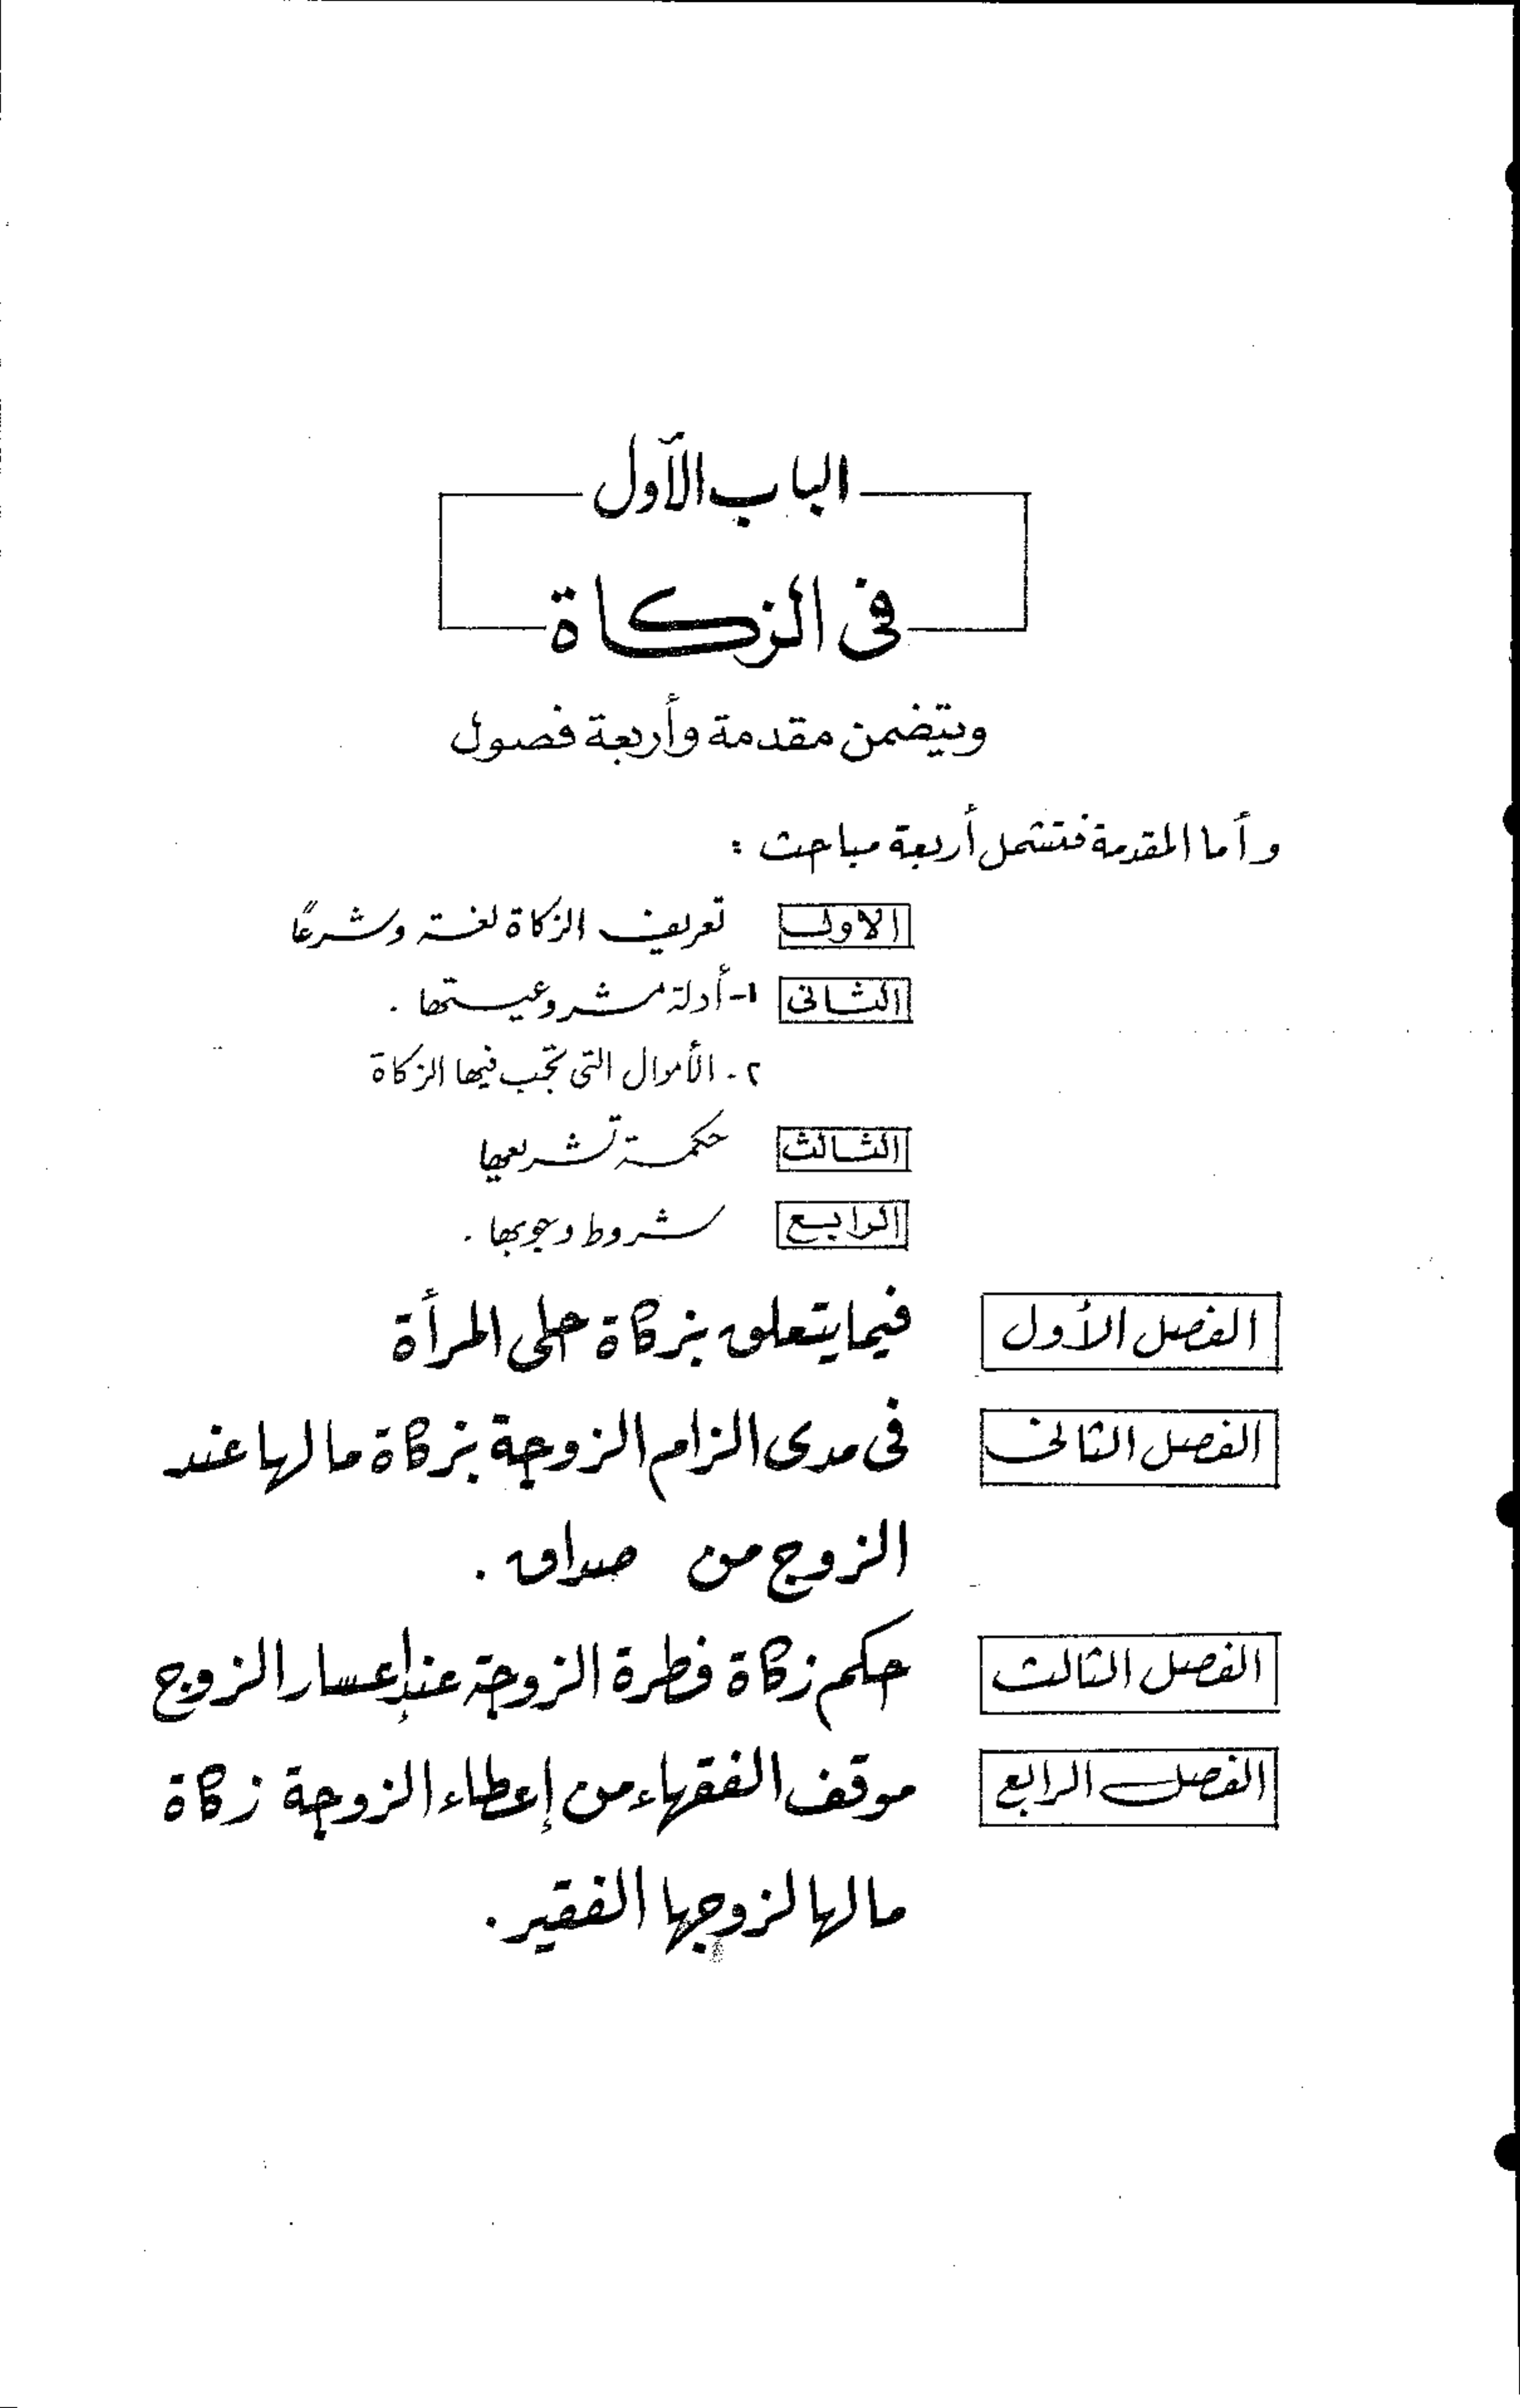 الباب الأول
فى الزكاة
ويتضمن مقدمة وأربعة فصول
وأما المقدمة فتشمل أربعة مباحث :
الاول تعريف الزكاة لغة وشرعًا
الثانى ١- أدلة مشروعيتها .
٢- الأموال التى تجب فيها الزكاة
الثالث حكمة تشريعها
الرابع شروط وجوبها .
الفصل الأول فيما يتعلق بزكاة حلى المرأة
الفصل الثانى فى مدى الزام الزوجة بزكاة مالها عند
الزوج من صداق .
الفصل الثالث حكم زكاة فطرة الزوجة عند إعسار الزوج
الفصل الرابع موقف الفقهاء من إعطاء الزوجة زكاة
مالها لزوجها الفقير .